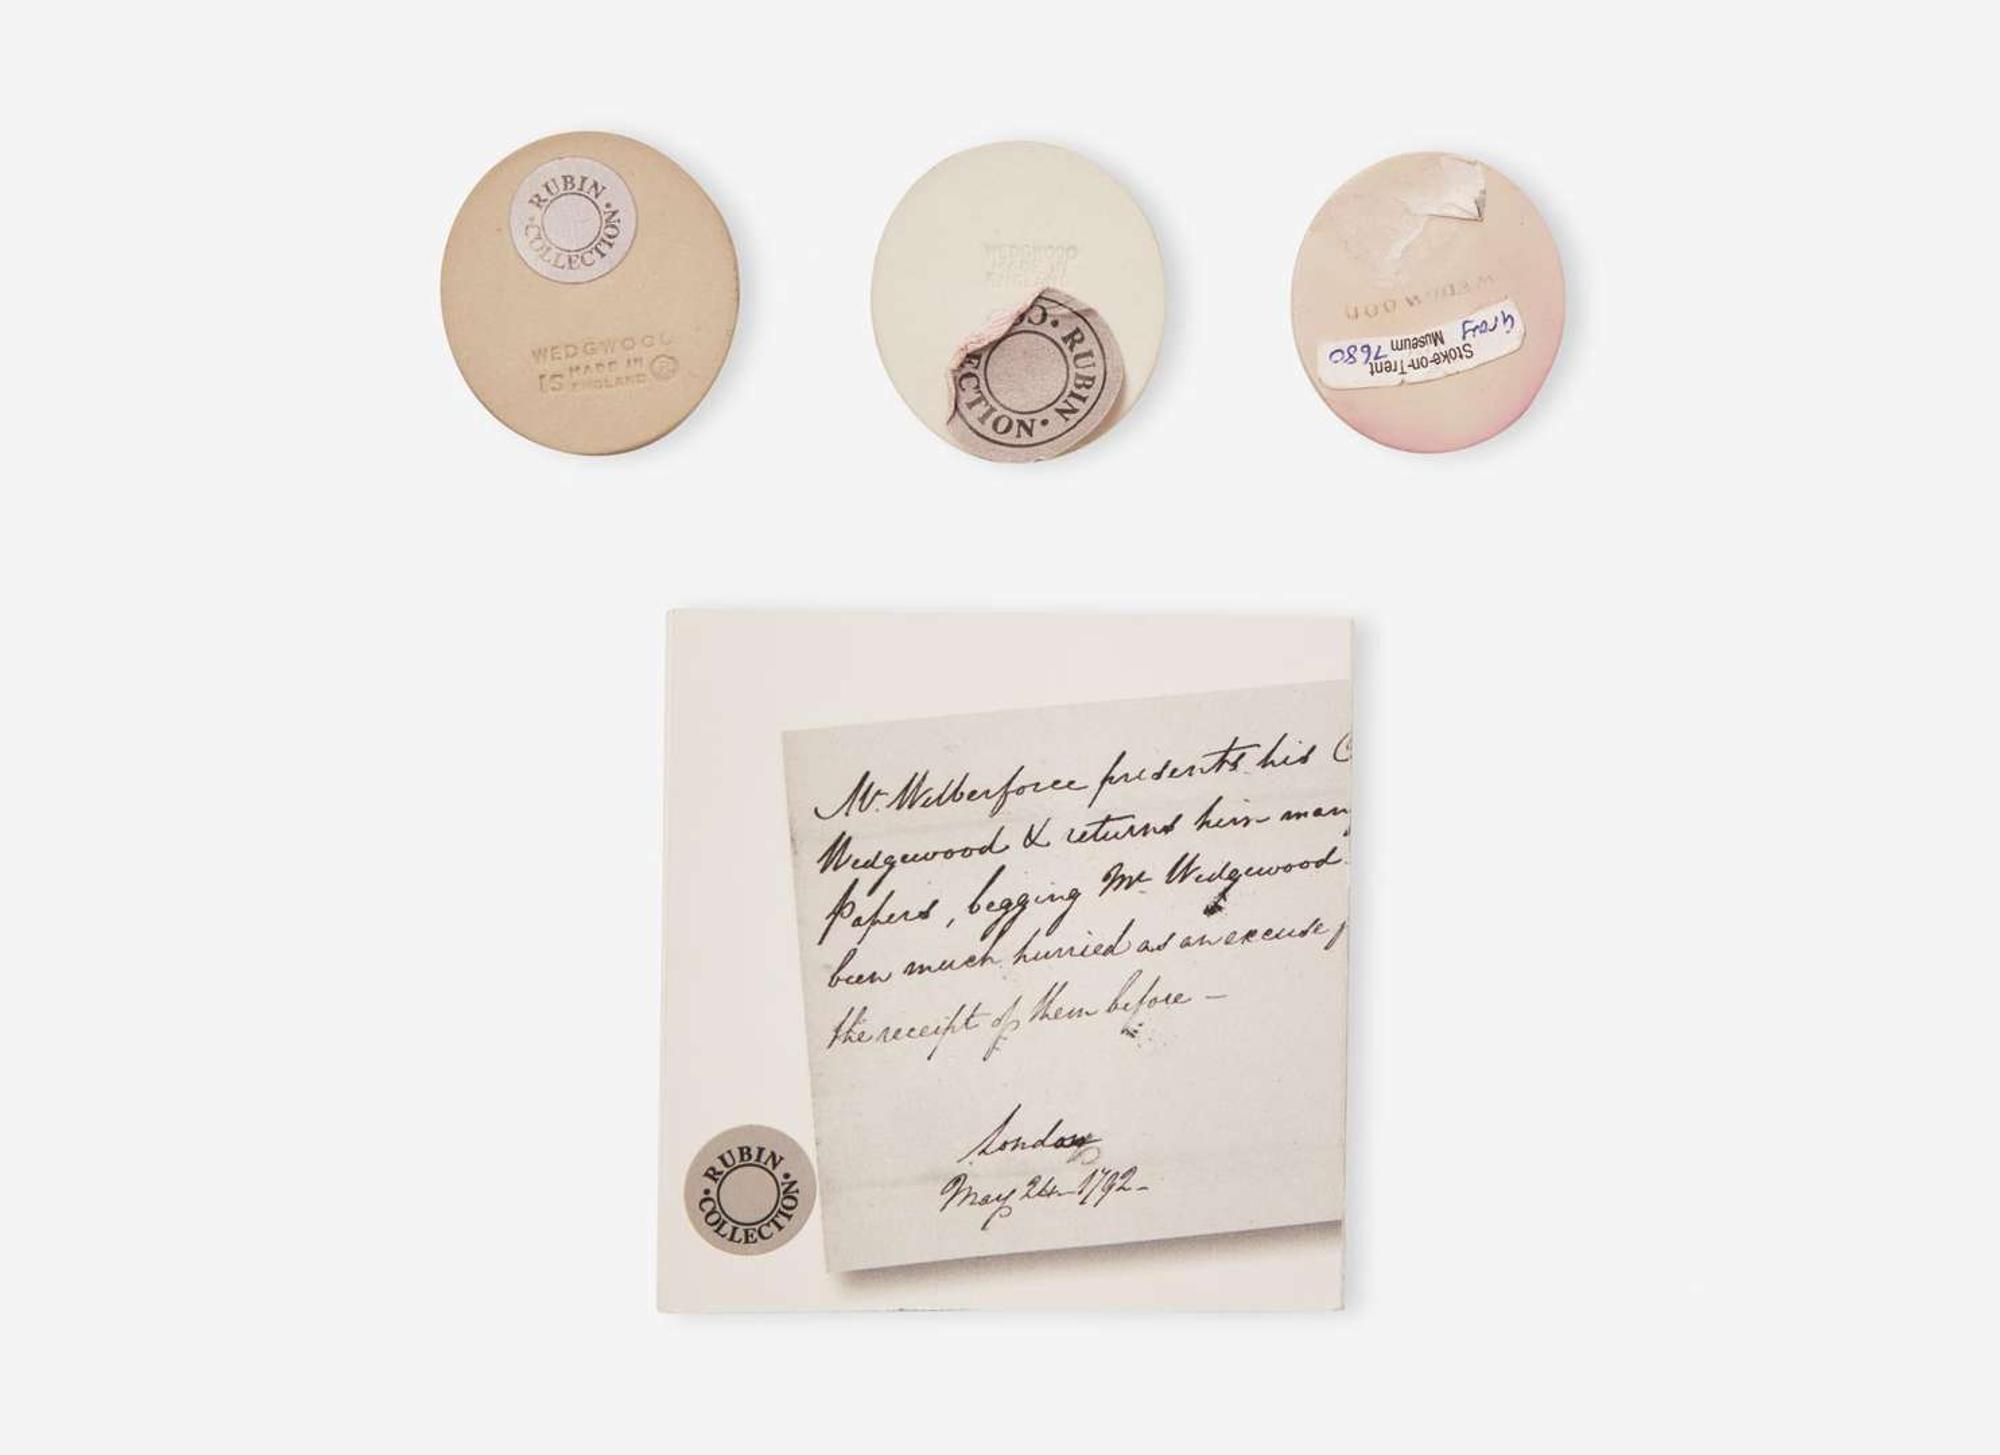 RUBIN • COLLECTION •
WEDGWOOD
IS MADE IN
ENGLAND ®
WEDGWOOD
MADE IN
ENGLAND
RUBIN • CO ECTION •
WEDGWOOD
Stoke-on-Trent
Museum
Gray 7680
Mr. Wilberforce presents his C
Wedgewood & returns him man
Papers, begging Mr. Wedgewood
been much hurried as an excuse f
the receipt of them before —
London
May 24 1792 -
RUBIN • COLLECTION •